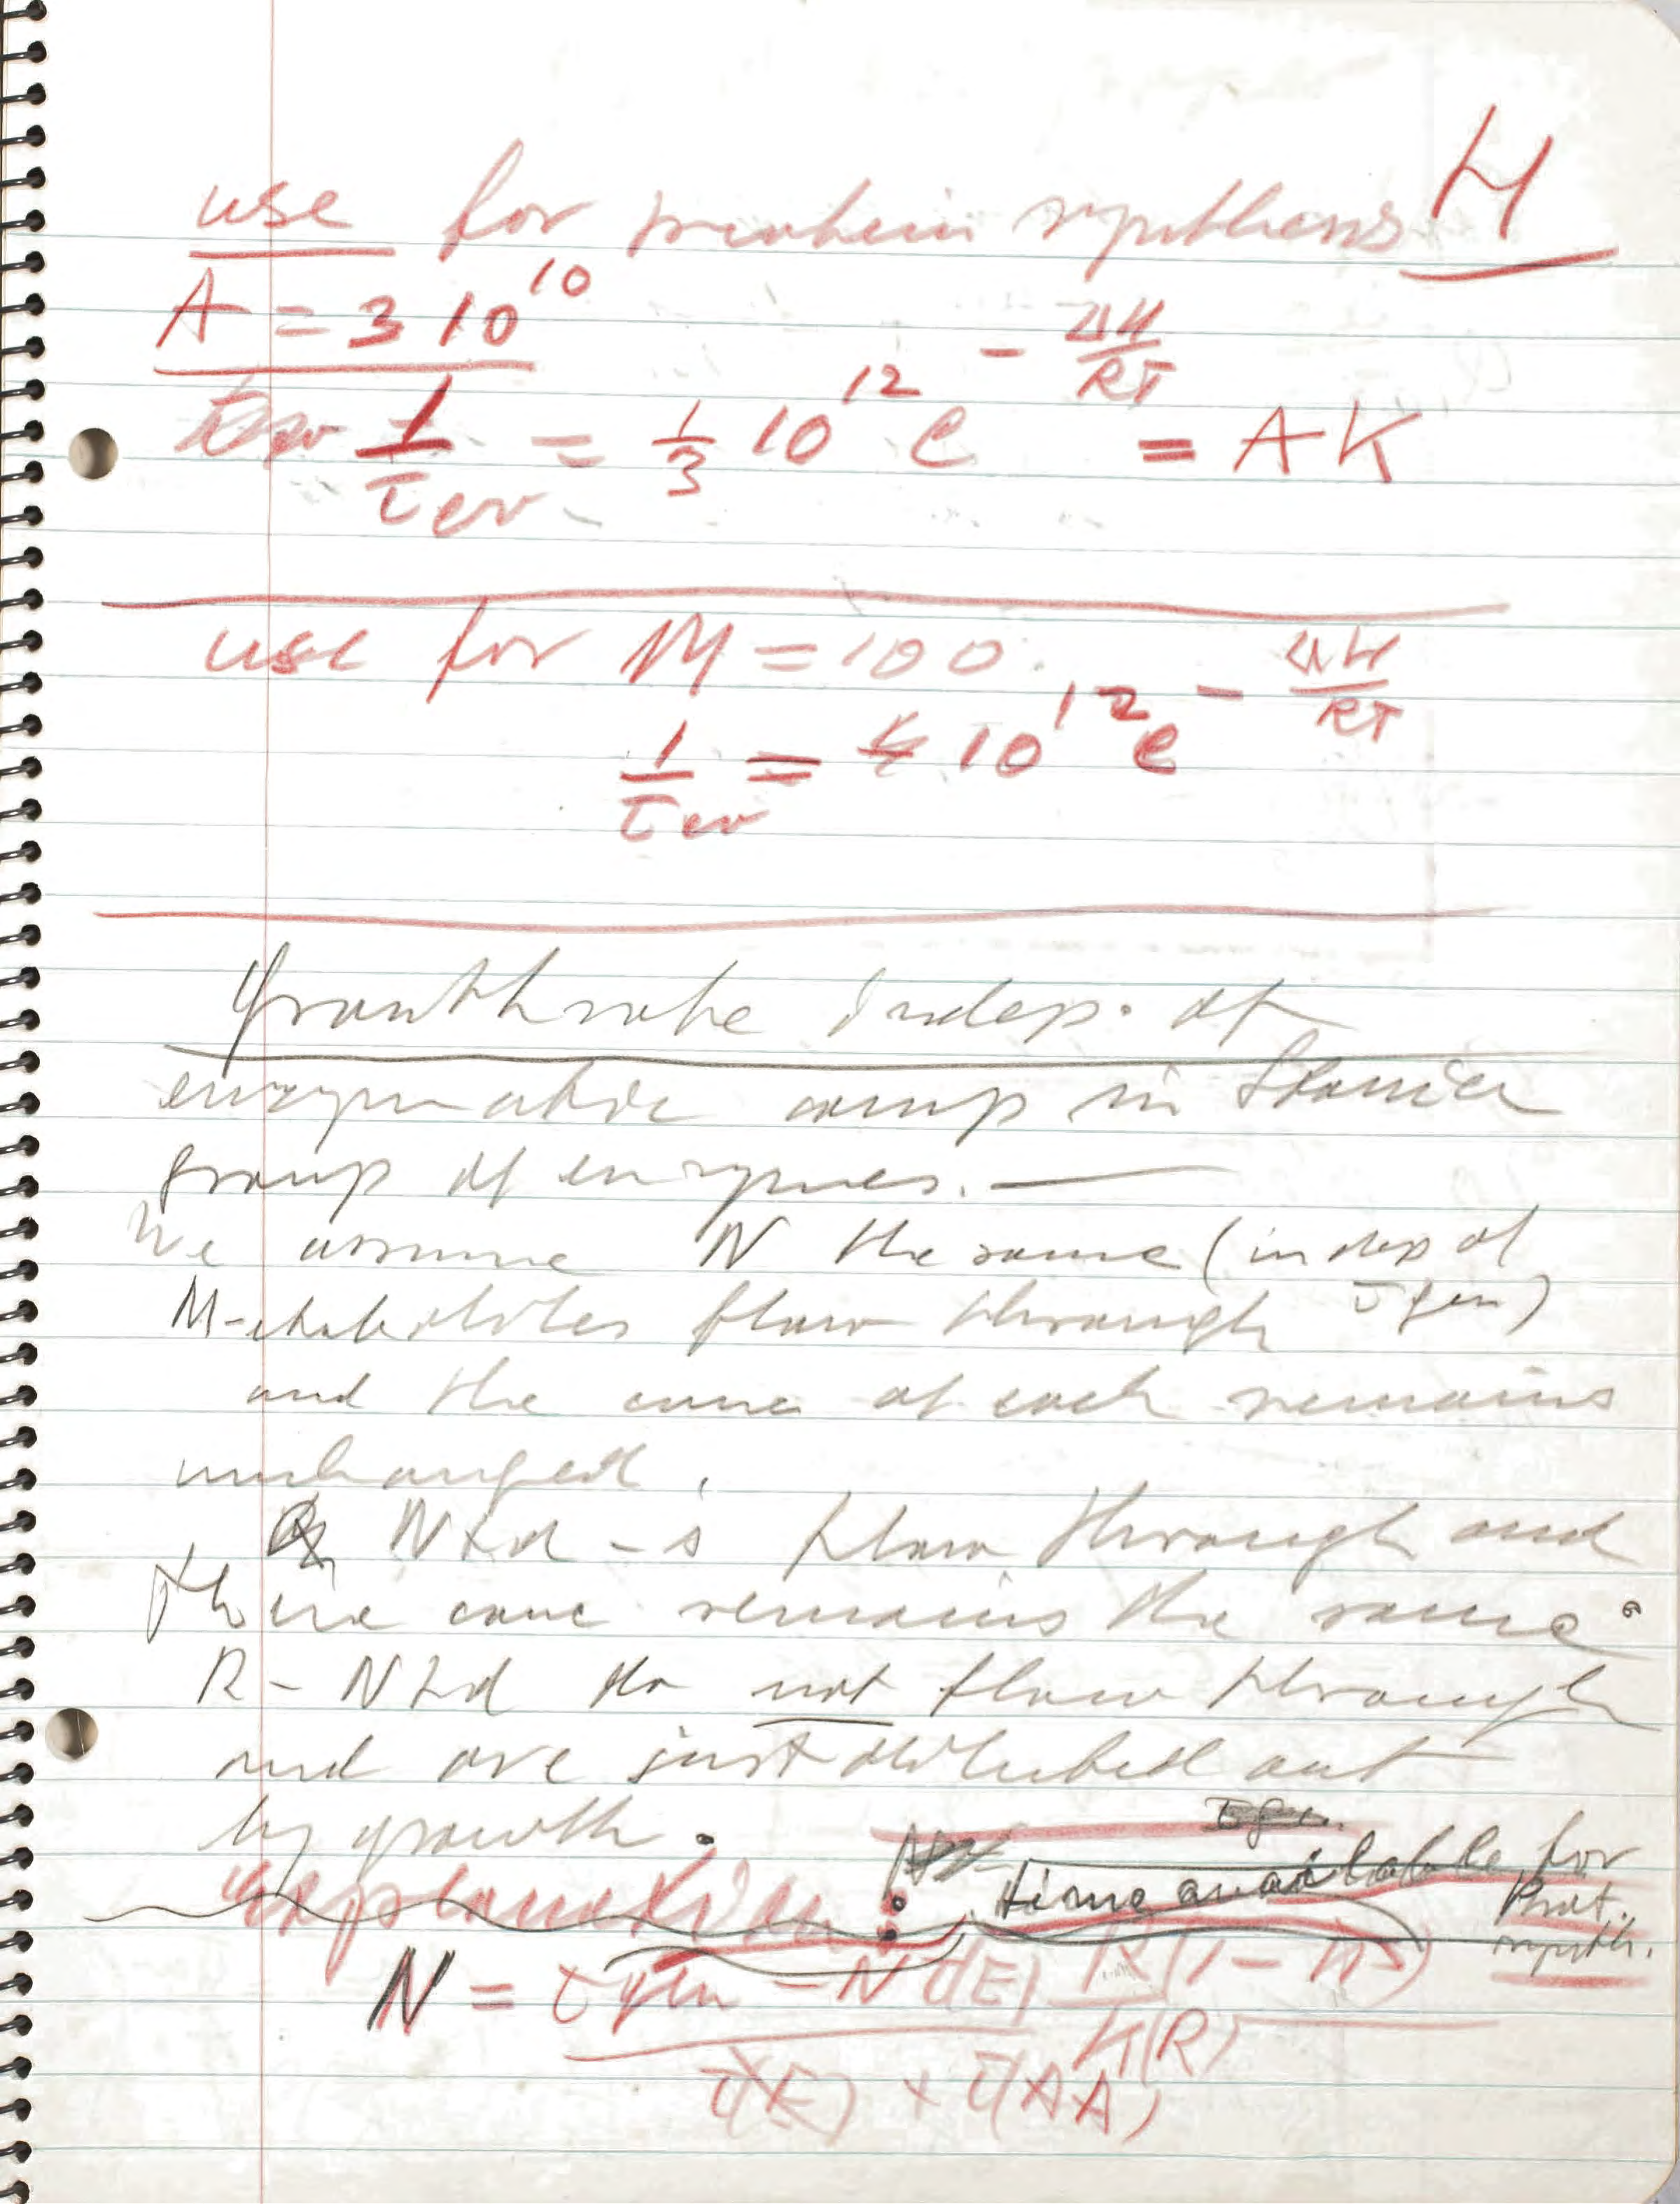 H
use for protein synthesis
A = 3 10^10
1/τ ev = 1/3 10^12 e^(-ΔH/RT) = AK
use for M = 100
1/τ ev = 10^12 e^(-ΔH/RT)
Growthrate indep. of
enzymatic comp in Stanier
group of enzymes. —
We assume N the same (indep of
τ gen)
M-etabolites flow through
and the conc of each remains
unchanged.
N2d-s flow through and
there conc remains the same.
R-N2d do not flow through
and are just diluted out
by growth.
explanation:
time available for
Prot.
synth.
N = τ gen - N τ(E) R(1-
K(R)
τ(E) + τ(AA)